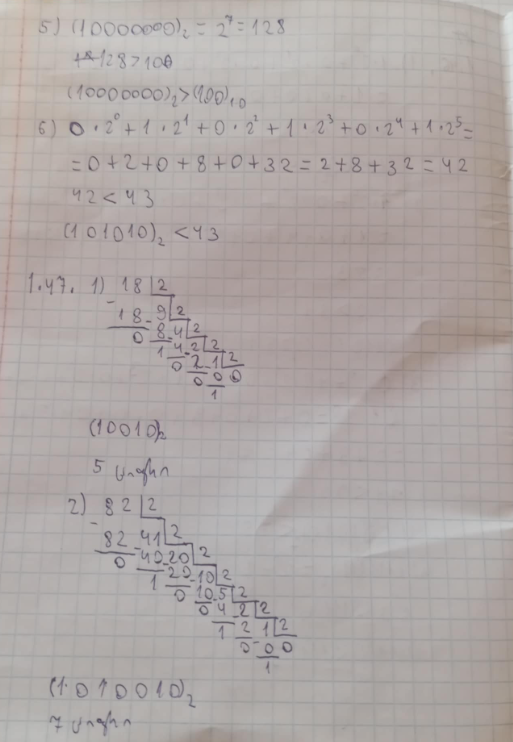 5) (10000000)₂ = 2⁷ = 128
128 > 100
(10000000)₂ > (100)₁₀
6) 0 · 2⁰ + 1 · 2¹ + 0 · 2² + 1 · 2³ + 0 · 2⁴ + 1 · 2⁵ =
= 0 + 2 + 0 + 8 + 0 + 32 = 2 + 8 + 32 = 42
42 < 43
(101010)₂ < 43
1.47. 1) 18 | 2
- 18 - 9 | 2
0 8 - 4 | 2
1 4 - 2 | 2
0 - 2 - 1 | 2
0 0 0
1
(10010)₂
5 նիշ
2) 82 | 2
- 82 - 41 | 2
0 - 40 - 20 | 2
1 20 - 10 | 2
0 10 - 5 | 2
0 4 - 2 | 2
1 2 1 | 2
0 - 0 0
1
(1010010)₂
7 նիշ